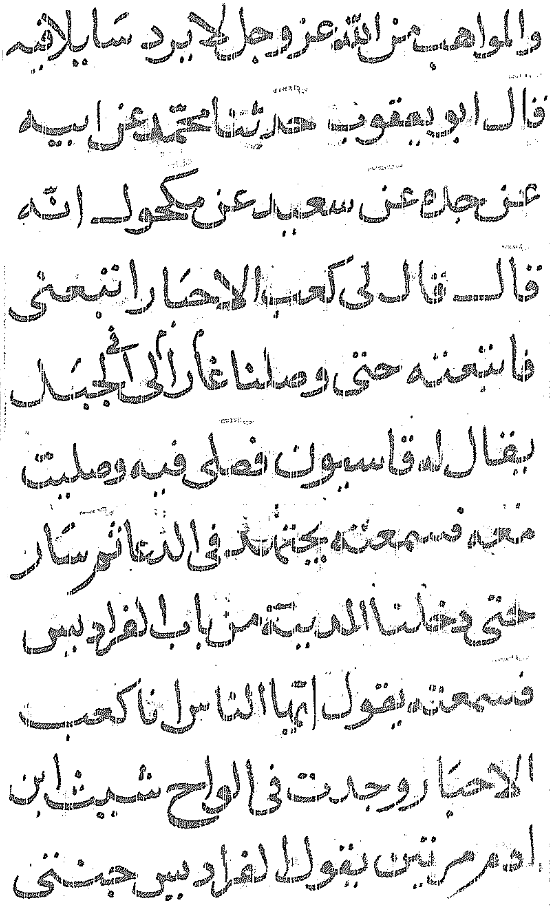 والمواهب من الله عز وجل لا يرد سايلا فيه
قال ابو يعقوب حدثنا محمد عن ابيه
عن جده عن سعيد عن مكحول انه
قال قال لي كعب الاحبار اتبعني
فاتبعته حتى وصلنا غارا في الجبل
يقال له قاسيون فصلى فيه وصليت
معه فسمعته يجتهد في الدعا ثم سار
حتى دخلنا المدينة من باب الفراديس
فسمعته يقول ايها الناس انا كعب
الاحبار وجدت في الواح شيث ابن
ادم مرتين يقول الفراديس جنتي